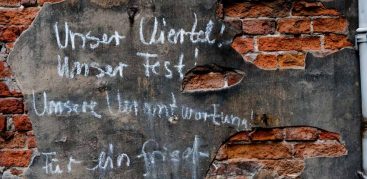 Unser Viertel!
Unser Fest!
Unsere Verantwortung!
Für ein